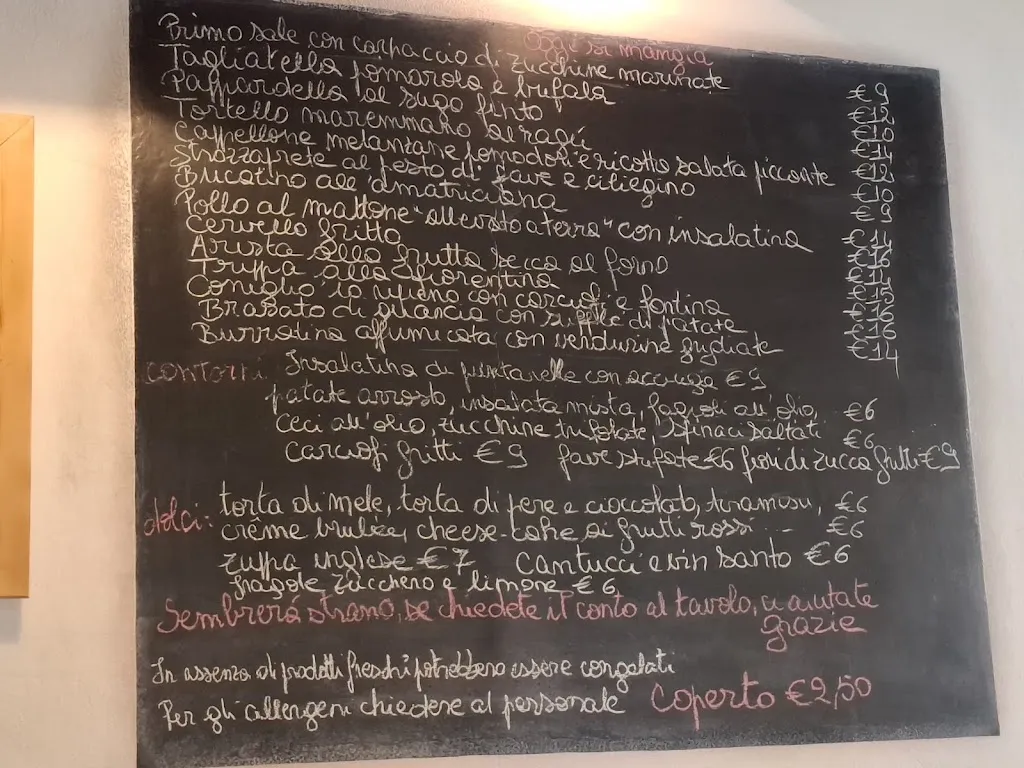 Oggi si mangia
Primo sale con carpaccio di zucchine marinate
Tagliatella pomarola e bufala
Pappardella al sugo finto
Tortello maremmano al ragù
Cappellone melanzane pomodori e ricotta salata piccante
Strozzaprete al pesto di fave e ciliegino
Bucatino all'amatriciana
Pollo al mattone "allevato a terra" con insalatina
Cervello fritto
Arista alla frutta secca al forno
Trippa alla fiorentina
Coniglio ripieno con carciofi e fontina
Brasato di guancia con soufflè di patate
Burratina affumicata con verdurine grigliate
contorni: Insalatina di puntarelle con acciuga €9
patate arrosto, insalata mista, fagioli all'olio, €6
Ceci all'olio, zucchine trifolate, spinaci saltati €6
Carciofi fritti €9 fave stufate €6 fiori di zucca fritti €9
dolci: torta di mele, torta di pere e cioccolato, tiramisu, €6
crême brulée, cheese-cake ai frutti rossi €6
zuppa inglese €7 Cantucci e vin santo €6
fragole zucchero e limone €6
Sembrerà strano, se chiedete il conto al tavolo, ci aiutate
grazie
In assenza di prodotti freschi potrebbero essere congelati
Per gli allergeni chiedere al personale Coperto €2,50